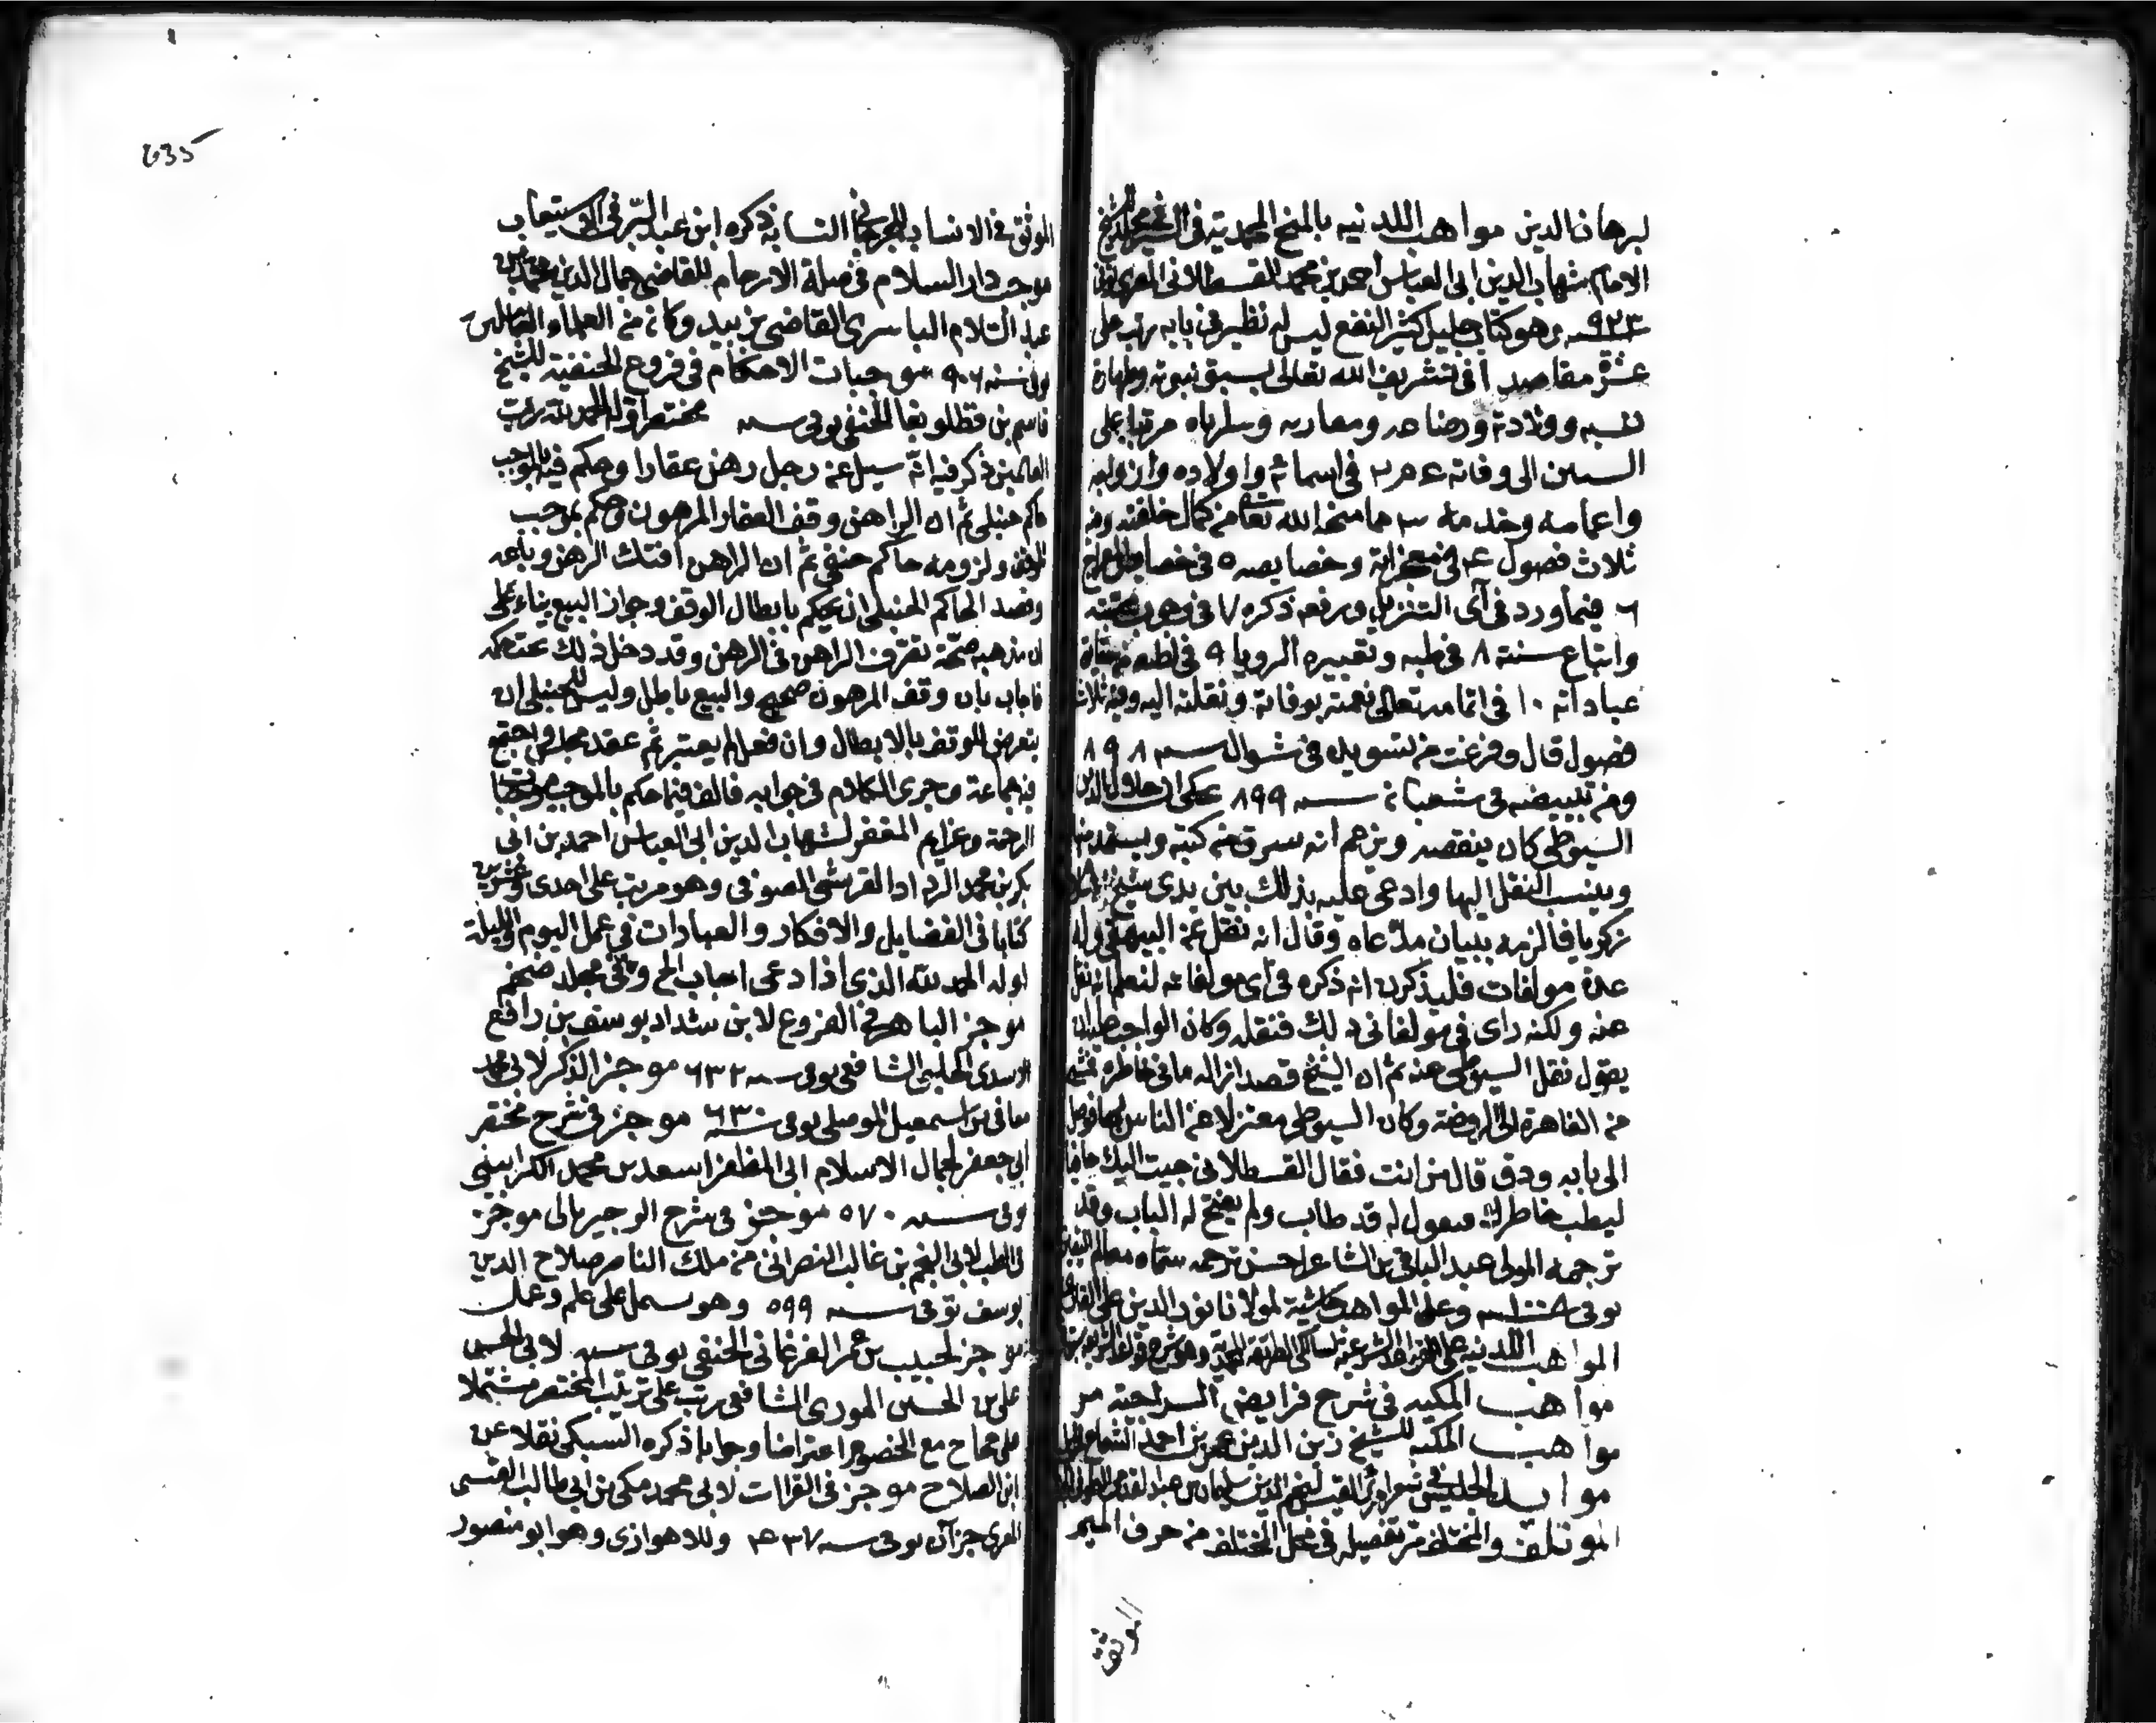 لبرهان الدين مواهب اللدنيه بالمنح المحمدية فى السير للشيخ
الامام شهاب الدين ابى العباس احمد بن محمد القسطلانى المصرى
٩٢٣ وهو كتاب جليل كثير النفع ليس له نظير فى بابه رتب على
عشرة مقاصد ا فى تشريف الله تعالى بسبق نبوته وطهارة
نسبه وولادته ورضاعه ومغازيه وسراياه مرتبا على
السنين الى وفاته ٢ فى اسمائه واولاده وازواجه
واعمامه وخدمه ٣ ما منحه الله تعالى من كمال خلقته وفيه
ثلاث فصول ٤ فى معجزاته وخصايصه ٥ فى خصايص المعراج
٦ فيما ورد فى آى التنزيل ورفعه ذكره ٧ فى وجوب محبته
واتباع سنته ٨ فى طبه وتعبيره الرويا ٩ فى لطيفة من
عباداته ١٠ فى اتمامه تعالى نعمته بوفاته ونقلته اليه وفيه ثلاث
فصول قال وفرغت من تسويده فى شوال سنه ٨٩٨
ومن تبييضه فى شعبان سنه ٨٩٩ حكى ان جلال الدين
السيوطى كان ينقصه ويزعم انه سرق من كتبه ويستمد منها
وينسب النقل اليها وادعى عليه بذلك بين يدى شيخ
زكريا فالزمه ببيان مدعاه وقال انه نقل عن البيهقى وله
عدة مولفات فليذكرن انه ذكره فى اى مولفاته لنعلم انه نقل
عنه ولكنه راى فى مولفاتى ذلك فنقله وكان الواجب عليه ان
يقول نقل السيوطى عنه ثم ان الشيخ قصد ازاله ما فى خاطره فمشى
من القاهرة الى الروضة وكان السيوطى معتزلا عن الناس بها فوصل
الى بابه ودق قال من انت فقال القسطلانى جيت اليك حافيا
ليطيب خاطرك فيقول له قد طاب ولم يفتح له الباب وقد
ترجمه المولى عبد الباقى بن الشاعر احسن ترجمه سماه معالم اليقين
توفى سنه وعلى المواهب حاشية لمولانا نور الدين على القارى
المواهب اللدنيه
مواهب المكيه فى شرح فرايض السراجية مر
مواهب المكيه للشيخ زين الدين عمر بن احمد الشماع
موايد
الموتلف والمختلف مر تفصيله فى محل المختلف من حرف الميم
الموثق
635
الموثق فى الانساب للجرجانى النسابة ذكره ابن عبد البر فى الاستيعاب
موجب دار السلام فى صلة الارحام للقاضى جمال الدين محمد بن
عبد السلام الناشرى القاضى بزبيد وكان من العلماء العاملين
توفى سنه ٩٠٦ موجبات الاحكام فى فروع الحنفية للشيخ
قاسم بن قطلوبغا الحنفى توفى سنه مختصر اوله الحمد لله رب
العالمين ذكر فيه انه سيل عن رجل رهن عقارا وحكم فيه بالموجب
حاكم حنبلى ثم ان الراهن وقف العقار المرهون وحكم بموجب
الوقف ولزومه حاكم حنفى ثم ان الراهن افتك الرهن وباعه
وقصد الحاكم الحنبلى ان يحكم بابطال الوقف وجواز البيع بناء على
ان مذهبه صحة تصرف الراهن فى الرهن وقد دخل ذلك تحت حكمه
فاجاب بان وقف المرهون صحيح والبيع باطل وليس للحنبلى ان
يتعرض للوقف بالابطال وان فعل لم يعتبر ثم عقد مجلس واجتمع
فيه جماعة وجرى الكلام فى جوابه فالف فيما حكم بالموجب
الرحمة وعزايم المغفرة لشهاب الدين ابى العباس احمد بن ابى
بكر بن محمد الرداد القرشى الصوفى وهو مرتب على احدى وعشرين
كتابا فى الفضايل والافكار والعبادات فى عمل اليوم والليلة
اوله الحمد لله الذى اذا دعى اجاب الخ وهى مجلد ضخم
موجز الباهر فى الفروع لابن شداد يوسف بن رافع
الاسدى الحلبى الشافعى توفى سنه ٦٣٢ موجز الذكر لابى محمد
معافى بن اسمعيل الموصلى توفى سنه ٦٣٠ موجز فى شرح مختصر
ابى جعفر لجمال الاسلام ابى المظفر اسعد بن محمد الكرابيسى
توفى سنه ٥٧٠ موجز فى شرح الوجيز ياتى موجز
فى الطب لابى النجم بن غالب النصرانى من ملك الناصر صلاح الدين
يوسف توفى سنه ٥٩٩ وهو يشمل على علم وعمل
موجز لحبيب بن عمر الفرغانى الحنفى توفى سنه لابى الحسن
على بن الحسين الجورى الشافعى رتب على ترتيب المختصر مشتملا
على حجاج مع الخصوم اعتراضا وجوابا ذكره السبكى نقلا عن
ابن الصلاح موجز فى القراات لابى محمد مكى بن ابى طالب القيسى
المقرى جزآن توفى سنه ٤٣٧ وللاهوازى وهو ابو منصور